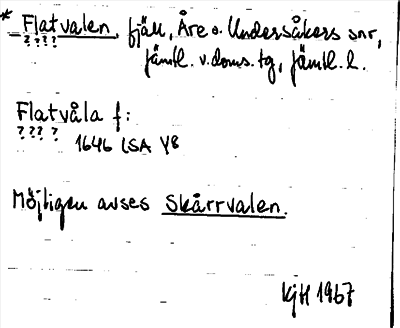 * Flatvalen, fjäll, Åre o. Undersåkers snr,
? ? ? ?
Jämtl. v. doms. tg, Jämtl. l.
Flatvåla f:
? ? ? ?
1646 LSA Y8
Möjligen avses Skårrvalen.
KjH 1967